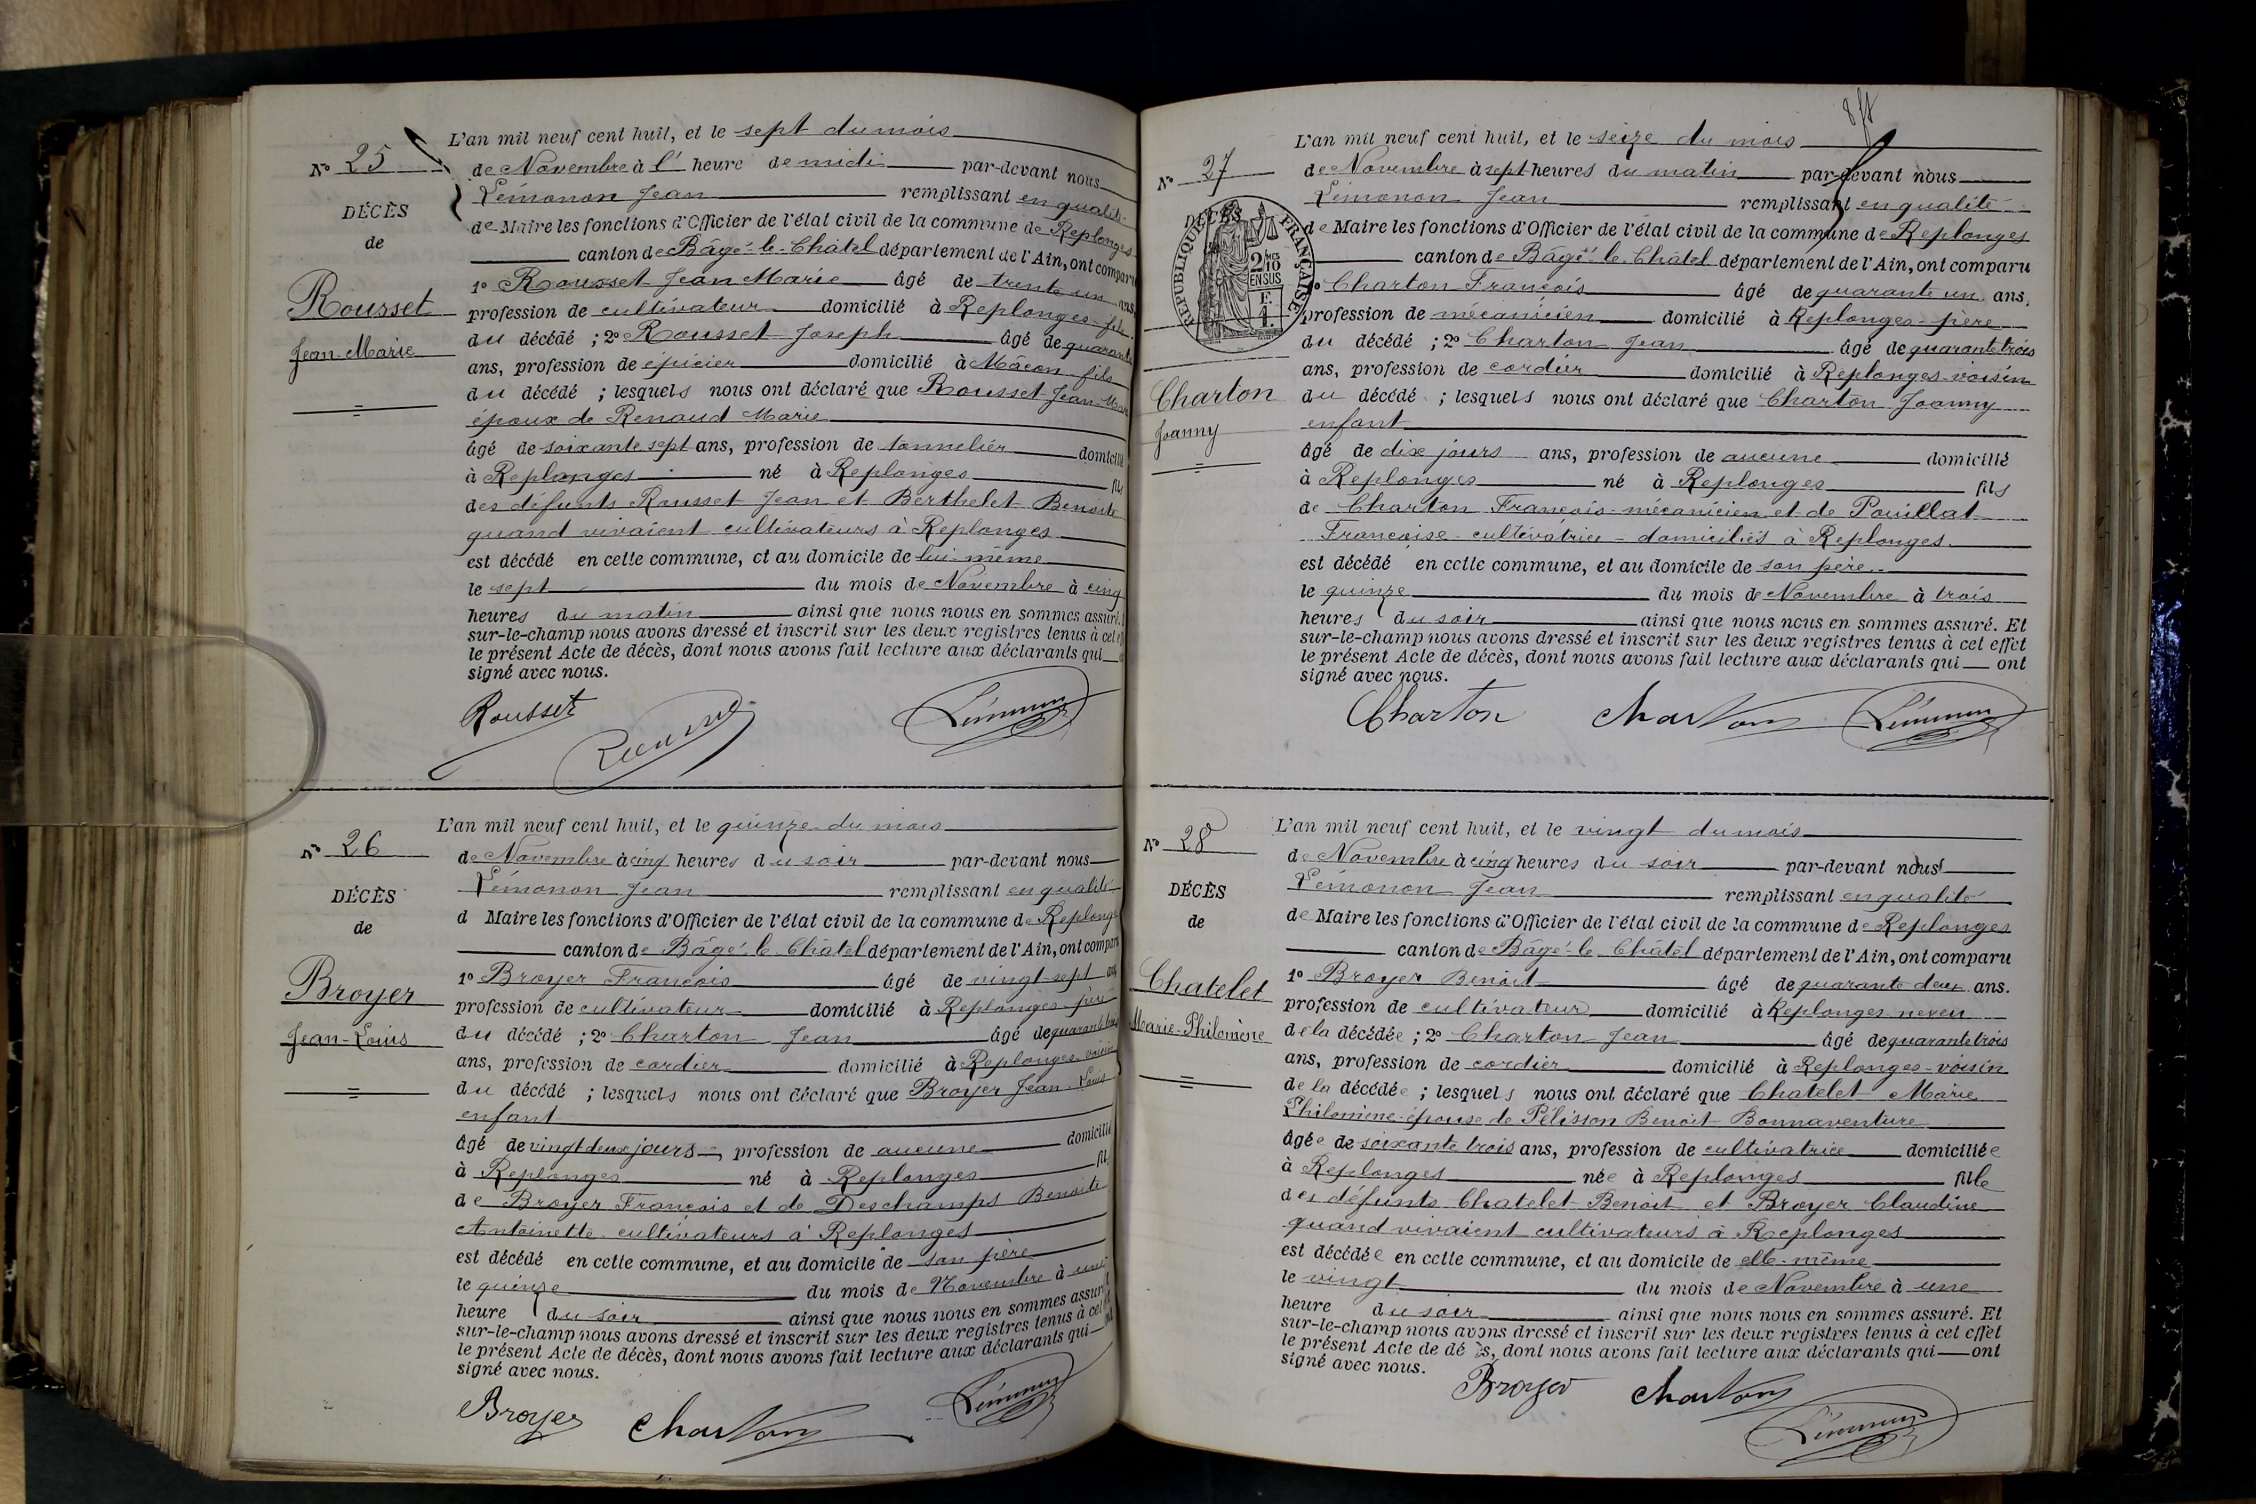 N° 25
DÉCÈS
de
Rousset
Jean-Marie
L'an mil neuf cent huit, et le sept du mois
de Novembre à l' heure de midi par-devant nous
Lémonon Jean remplissant en qualité
de Maire les fonctions d'Officier de l'état civil de la commune de Replonges
canton de Bâgé-le-Châtel département de l'Ain, ont comparu
1° Rousset Jean Marie âgé de trente un ans,
profession de cultivateur domicilié à Replonges fils
du décédé ; 2° Rousset Joseph âgé de quarante
ans, profession de épicier domicilié à Mâcon fils
du décédé ; lesquels nous ont déclaré que Rousset Jean Mar
époux de Renaud Marie
âgé de soixante sept ans, profession de tonnelier domicilié
à Replonges né à Replonges fils
des défunts Rousset Jean et Berthelet Benoite
quand vivaient cultivateurs à Replonges
est décédé en cette commune, et au domicile de lui-même
le sept du mois de Novembre à cinq
heures du matin ainsi que nous nous en sommes assuré.
sur-le-champ nous avons dressé et inscrit sur les deux registres tenus à cet
le présent Acte de décès, dont nous avons fait lecture aux déclarants qui
signé avec nous.
Rousset Lémonon
N° 26
DÉCÈS
de
Broyer
Jean-Louis
L'an mil neuf cent huit, et le quinze du mois
de Novembre à cinq heures du soir par-devant nous
Lémonon Jean remplissant en qualité
d Maire les fonctions d'Officier de l'état civil de la commune de Replonge
canton de Bâgé-le-Châtel département de l'Ain, ont comparu
1° Broyer François âgé de vingt-sept ans
profession de cultivateur domicilié à Replonges père
du décédé ; 2° Charton Jean âgé de quarante trois
ans, profession de cordier domicilié à Replonges voisin
du décédé ; lesquels nous ont déclaré que Broyer Jean-Louis
enfant
âgé de vingt deux jours, profession de aucune domicilié
à Replonges né à Replonges fils
de Broyer François et de Deschamps Benoite
Antoinette cultivateurs à Replonges
est décédé en cette commune, et au domicile de son père
le quinze du mois de Novembre à une
heure du soir ainsi que nous nous en sommes assuré
sur-le-champ nous avons dressé et inscrit sur les deux registres tenus à cet
le présent Acte de décès, dont nous avons fait lecture aux déclarants qui
signé avec nous.
Broyer Charton Lémonon
N° 27
DÉCÈS
RÉPUBLIQUE FRANÇAISE
2/10 EN SUS
Charton
Joanny
L'an mil neuf cent huit, et le seize du mois
de Novembre à sept heures du matin par-devant nous
Lémonon Jean remplissant en qualité
de Maire les fonctions d'Officier de l'état civil de la commune de Replonges
canton de Bâgé-le-Châtel département de l'Ain, ont comparu
1° Charton François âgé de quarante un ans,
profession de mécanicien domicilié à Replonges père
du décédé ; 2° Charton Jean âgé de quarante trois
ans, profession de cordier domicilié à Replonges-voisin
du décédé ; lesquels nous ont déclaré que Charton Joanny
enfant
âgé de dix jours ans, profession de aucune domicilié
à Replonges né à Replonges fils
de Charton François mécanicien et de Pouillat
Françoise cultivatrice domiciliés à Replonges
est décédé en cette commune, et au domicile de son père
le quinze du mois de Novembre à trois
heures du soir ainsi que nous nous en sommes assuré. Et
sur-le-champ nous avons dressé et inscrit sur les deux registres tenus à cet effet
le présent Acte de décès, dont nous avons fait lecture aux déclarants qui ont
signé avec nous.
Charton Charton Lémonon
N° 28
DÉCÈS
de
Chatelet
Marie-Philomène
L'an mil neuf cent huit, et le vingt du mois
de Novembre à cinq heures du soir par-devant nous
Lémonon Jean remplissant en qualité
de Maire les fonctions d'Officier de l'état civil de la commune de Replonges
canton de Bâgé-le-Châtel département de l'Ain, ont comparu
1° Broyer Benoit âgé de quarante deux ans.
profession de cultivateur domicilié à Replonges neveu
de la décédée ; 2° Charton Jean âgé de quarante trois
ans, profession de cordier domicilié à Replonges-voisin
de la décédée ; lesquels nous ont déclaré que Chatelet Marie
Philomène épouse de Pélisson Benoit Bonnaventure
âgée de soixante trois ans, profession de cultivatrice domiciliée
à Replonges née à Replonges fille
des défunts Chatelet Benoit et Broyer Claudine
quand vivaient cultivateurs à Replonges
est décédée en cette commune, et au domicile de elle-même
le vingt du mois de Novembre à une
heure du soir ainsi que nous nous en sommes assuré. Et
sur-le-champ nous avons dressé et inscrit sur les deux registres tenus à cet effet
le présent Acte de décès, dont nous avons fait lecture aux déclarants qui ont
signé avec nous.
Broyer Charton
Lémonon